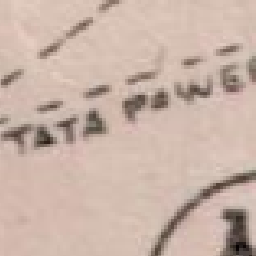 TATA POWER